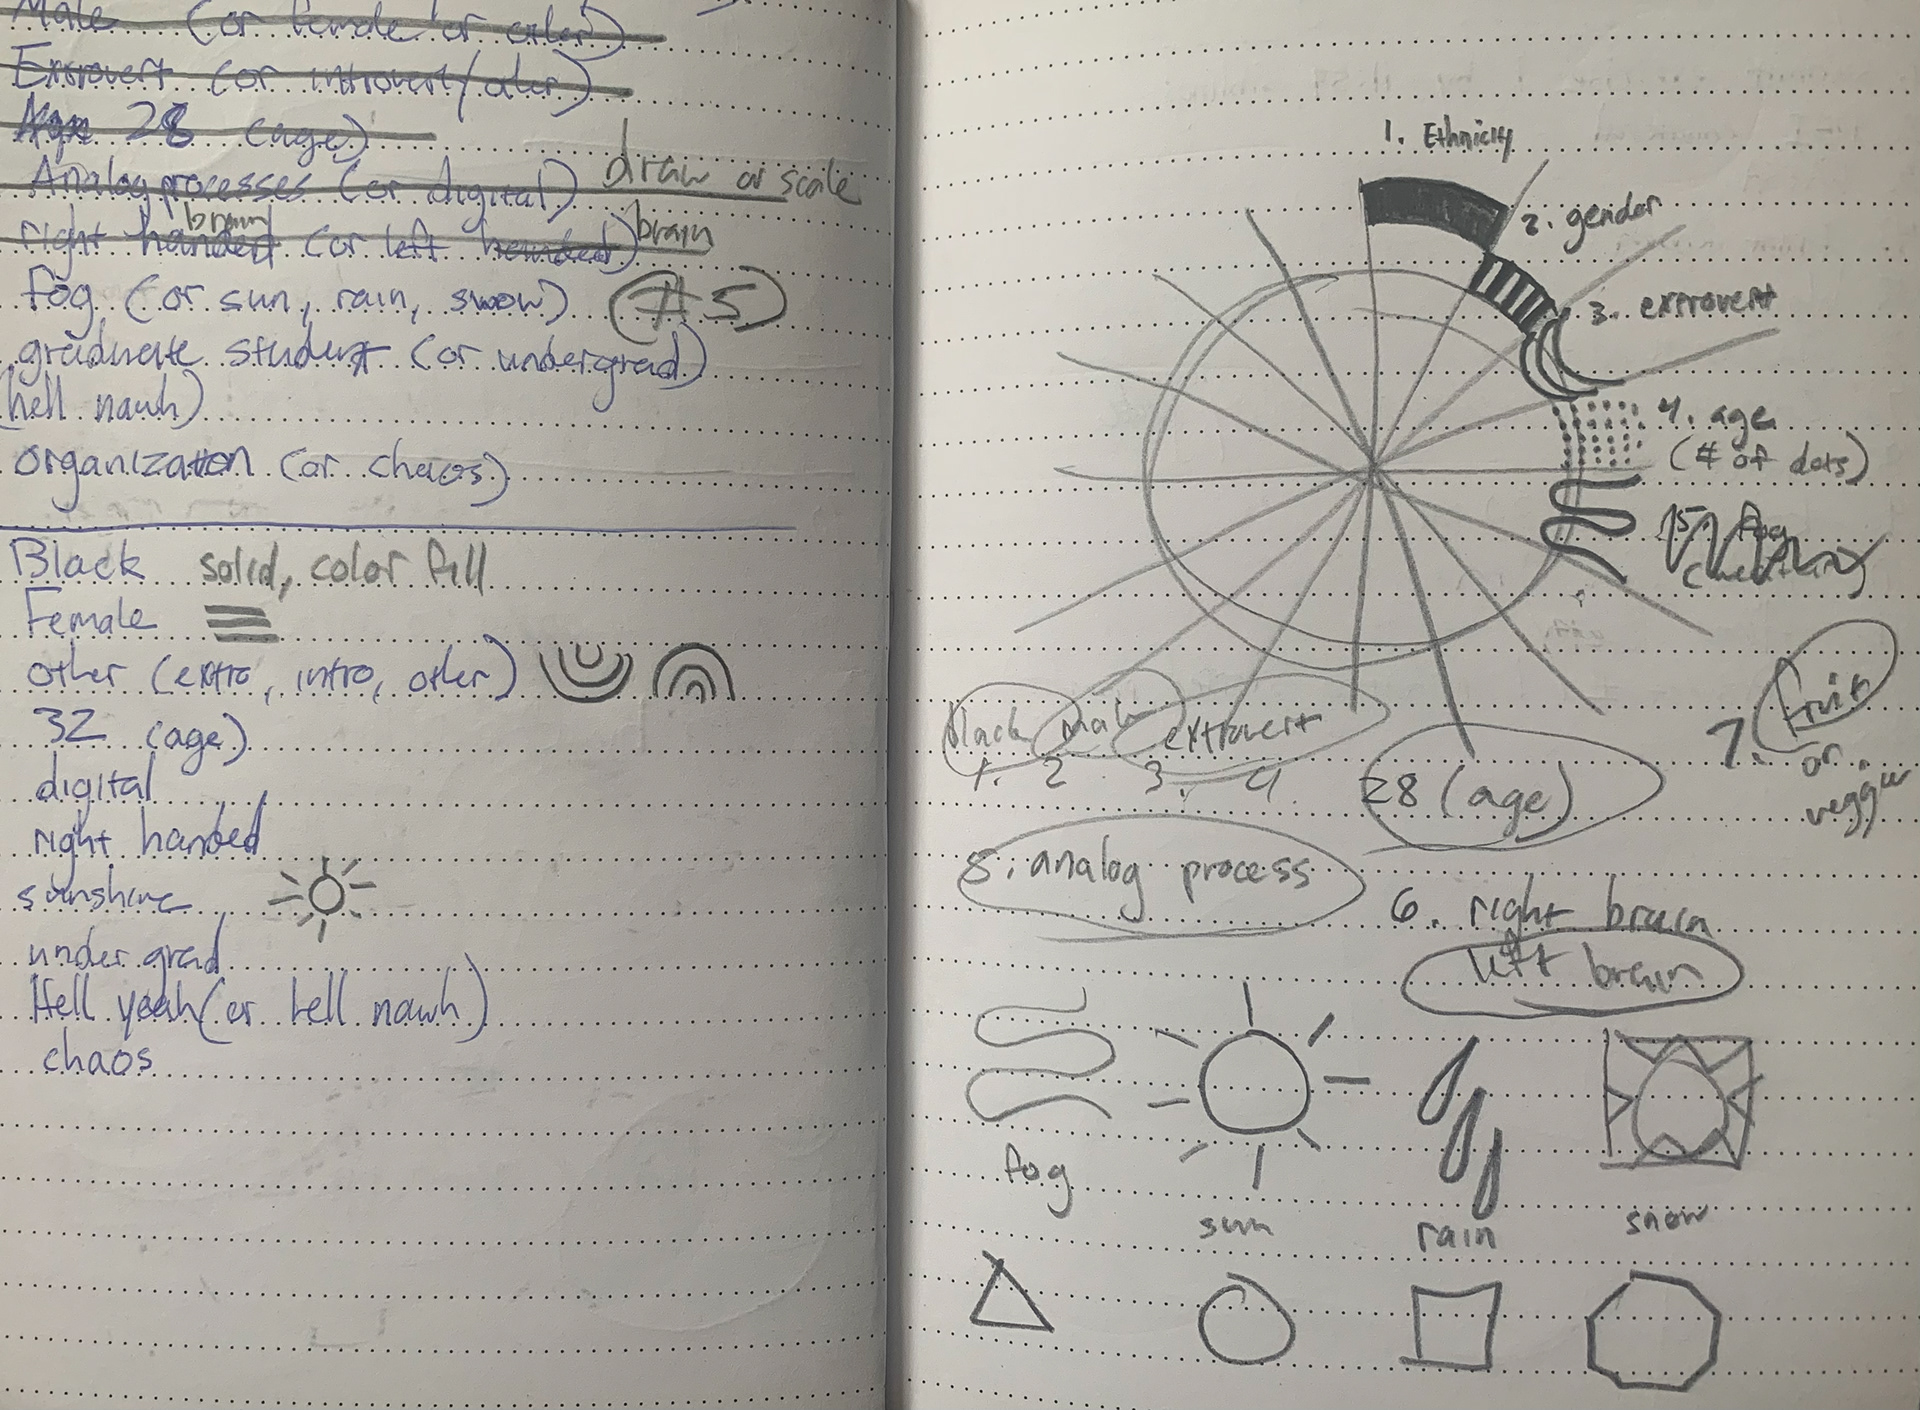 Male (or female or other)
Exrovert (or introvert/other)
Age 28 (age)
Analog processes (or digital) draw or scale
right handed brain (or left handed) brain
fog (or sun, rain, snow) (#5)
graduate student (or undergrad)
(hell nawh)
organization (or chaos)
Black solid, color fill
Female
other (extro, intro, other)
32 (age)
digital
right handed
sunshine
under grad
Hell yeah (or hell nawh)
chaos
1. Ethnicity
2. gender
3. extrovert
4. age
(# of dots)
5. fog
black male extrovert
1. 2 3. 4.
28 (age)
7. fruit
or
veggie
5. analog process
6. right brain
left brain
fog
sun
rain
snow